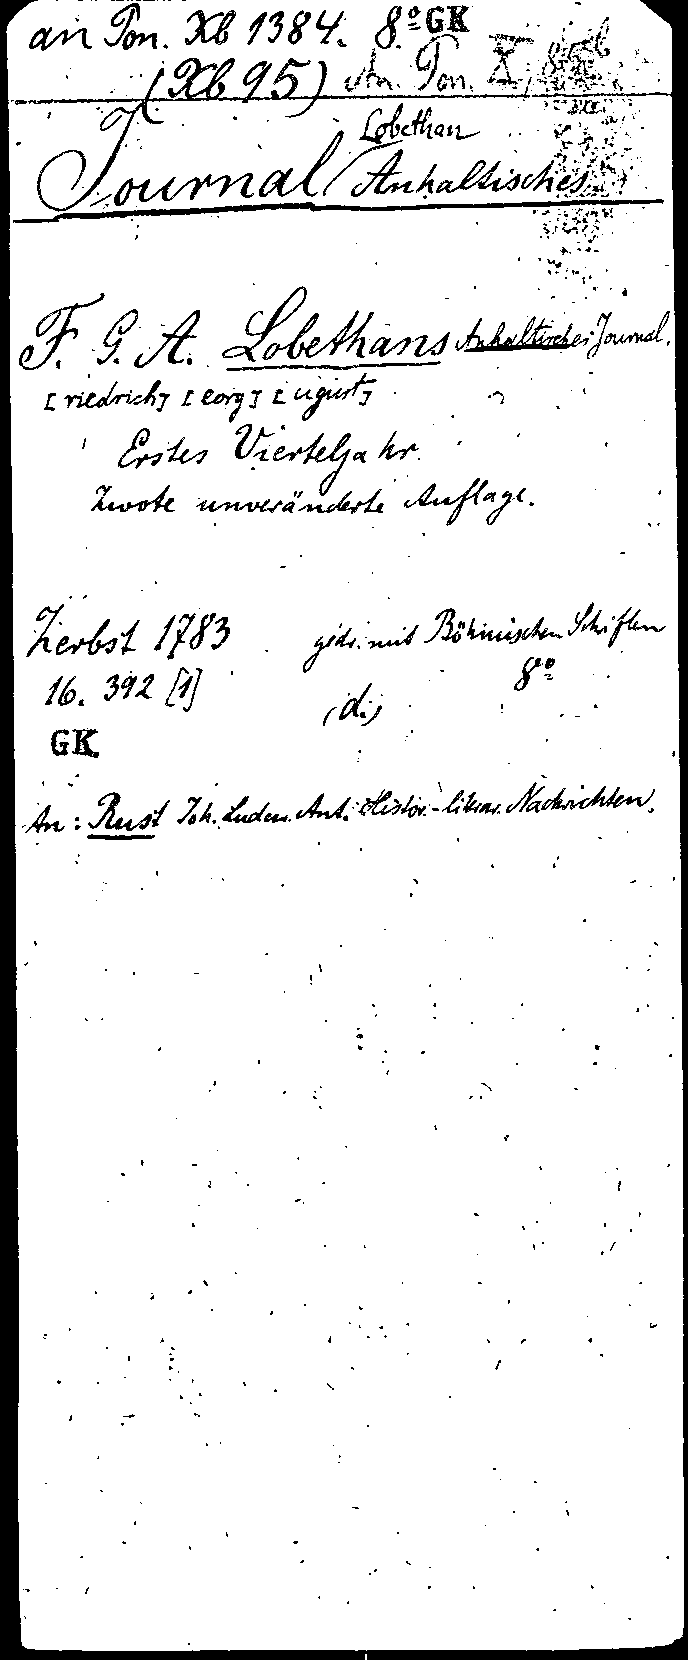 an Pon. Xb 1384. 8.º GK
(Xb 95) An Pon. X,
Lobethan
Journal Anhaltisches
F. G. A. Lobethans Anhaltisches Journal.
[riedrich] [eorg] [ugust]
Erstes Vierteljahr.
Zwote unveränderte Auflage.
Zerbst 1783 gedr. mit Böhmischen Schriften
16. 392 [1] 8º
(di)
GK
An: Rust Joh. Ludw. Ant. Histor.-literar. Nachrichten.